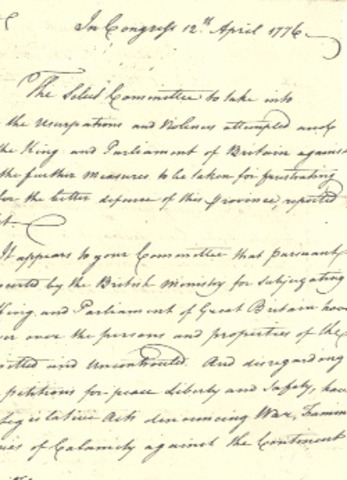 In Congress 12th April 1776
The Select Committee to take into
the Usurpations and Violences attempted and
the King and Parliament of Britain against
the further Measures to be taken for frustrating
for the better defence of this Province, reported
It appears to your Committee that pursuant
by the British Ministry for Subjugating
King and Parliament of Great Britain have
over the persons and properties of the
and Uncontrouled And disregarding
petitions for peace Liberty and Safety, have
Legislative Acts denouncing War, Famine
of Calamity against the Continent